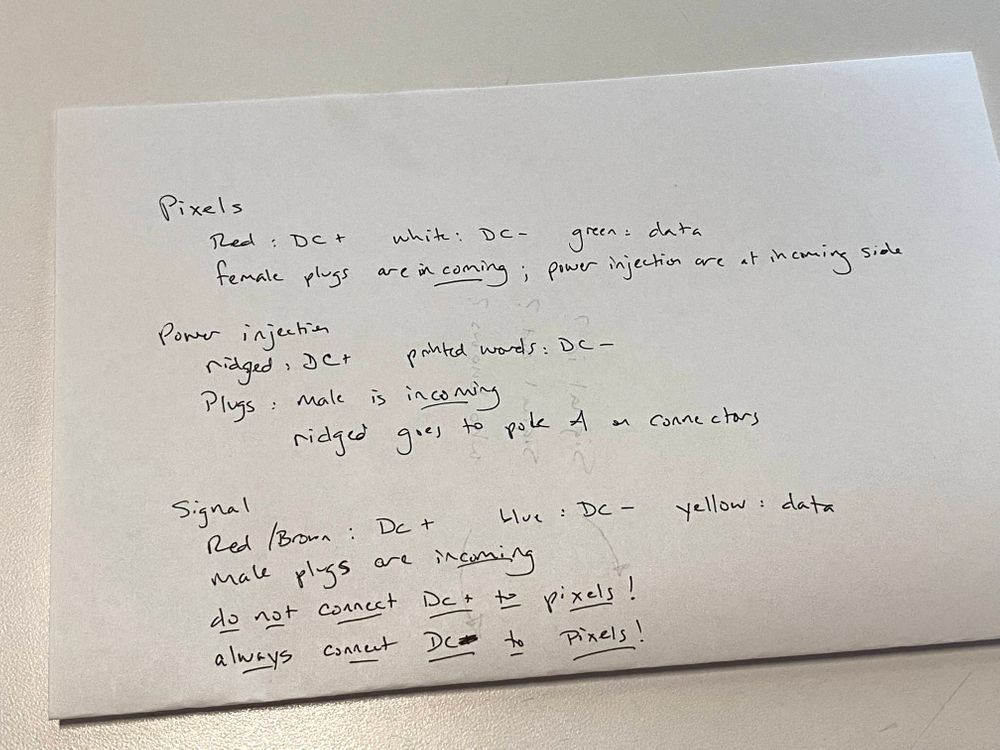 Pixels
Red : DC+ white : DC- green : data
female plugs are incoming ; power injection are at incoming side
Power injection
ridged : DC+ printed words : DC-
Plugs : male is incoming
ridged goes to pole A on connectors
Signal
Red/Brown : DC+ blue : DC- yellow : data
male plugs are incoming
do not connect DC+ to pixels!
always connect DC- to Pixels!